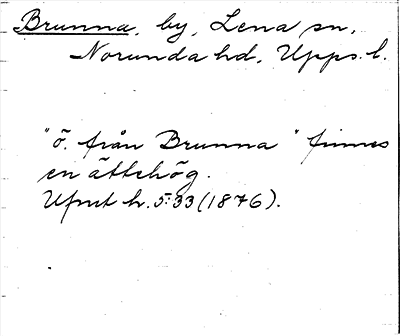 Brunna, by, Lena sn,
Norunda hd, Upps. l.
"ö. från Brunna" finnes
en ättehög.
Ufmt h. 5:33 (1876).